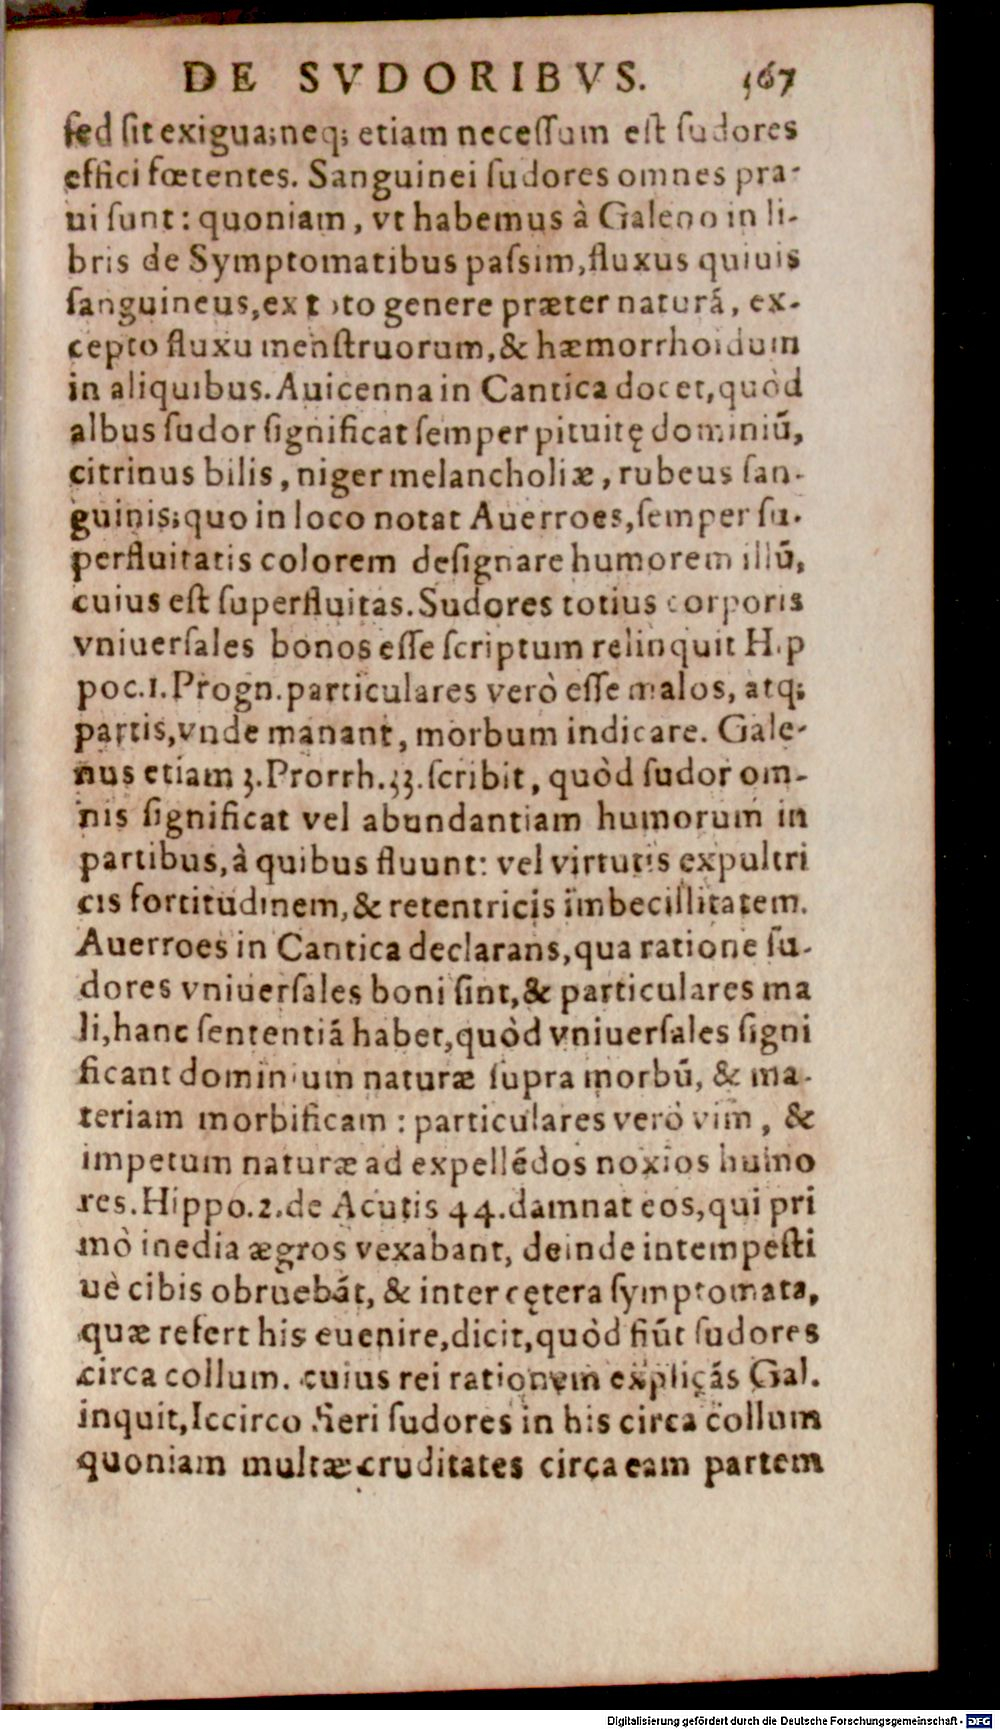 DE SVDORIBVS. 567
ſed ſit exigua;neq; etiam neceſſum eſt ſudores
effici fœtentes. Sanguinei ſudores omnes pra-
ui ſunt: quoniam, vt habemus à Galeno in li-
bris de Symptomatibus paſsim,fluxus quiuis
ſanguineus,ex toto genere præter naturá, ex-
cepto fluxu menſtruorum,& hæmorrhoidum
in aliquibus. Auicenna in Cantica docet,quòd
albus ſudor ſignificat ſemper pituitę dominiũ,
citrinus bilis, niger melancholiæ, rubeus ſan-
guinis;quo in loco notat Auerroes,ſemper ſu-
perfluitatis colorem deſignare humorem illũ,
cuius eſt ſuperfluitas. Sudores totius corporis
vniuerſales bonos eſſe ſcriptum relinquit Hip
poc.1.Progn.particulares verò eſſe malos, atq;
partis,vnde manant, morbum indicare. Gale-
nus etiam 3.Prorrh.33.ſcribit, quòd ſudor om-
nis ſignificat vel abundantiam humorum in
partibus,à quibus fluunt: vel virtutis expultri
cis fortitudinem,& retentricis imbecillitatem.
Auerroes in Cantica declarans,qua ratione ſu-
dores vniuerſales boni ſint,& particulares ma
li,hanc ſententiá habet,quòd vniuerſales ſigni
ficant dominium naturæ ſupra morbũ, & ma-
teriam morbificam: particulares verò vim, &
impetum naturæ ad expellédos noxios humo
res. Hippo.2.de Acutis 44.damnat eos,qui pri
mò inedia ægros vexabant, deinde intempeſti
uè cibis obruebát, & inter cętera ſymptomata,
quæ refert his euenire,dicit,quòd fiũt ſudores
circa collum. cuius rei rationem explicás Gal.
inquit,Iccirco fieri ſudores in his circa collum
quoniam multæ cruditates circa eam partem
Digitalisierung gefördert durch die Deutsche Forschungsgemeinschaft - DFG